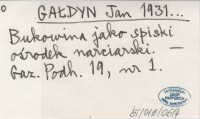 GAŁDYN Jan 1931...
Bukowina jako spiski
ośrodek narciarski. —
Gaz. Podh. 19, nr 1.